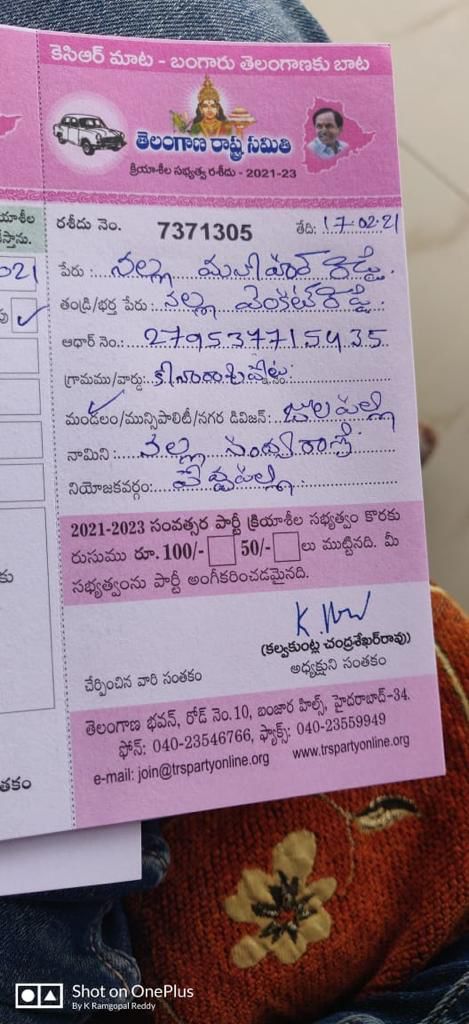 కెసిఆర్ మాట - బంగారు తెలంగాణకు బాట
తెలంగాణ రాష్ట్ర సమితి
క్రియాశీల సభ్యత్వ రశీదు - 2021-23
రశీదు నెం. 7371305 తేది: 17-02-21
పేరు : నల్ల మనోహర్ రెడ్డి.
తండ్రి/భర్త పేరు : నల్ల వెంకట్ రెడ్డి.
ఆధార్ నెం.: 279537715435
గ్రామము/వార్డు:
మండలం/మున్సిపాలిటీ/నగర డివిజన్: జూలపల్లి
నామిని : నల్ల సంధ్యారాణి
నియోజకవర్గం: పెద్దపల్లి
2021-2023 సంవత్సర పార్టీ క్రియాశీల సభ్యత్వం కొరకు
రుసుము రూ. 100/- 50/- లు ముట్టినది. మీ
సభ్యత్వంను పార్టీ అంగీకరించడమైనది.
(కల్వకుంట్ల చంద్రశేఖర్‌రావు)
చేర్పించిన వారి సంతకం అధ్యక్షుని సంతకం
తెలంగాణ భవన్, రోడ్ నెం. 10, బంజార హిల్స్, హైదరాబాద్-34.
ఫోన్: 040-23546766, ఫ్యాక్స్: 040-23559949
e-mail: join@trspartyonline.org www.trspartyonline.org
Shot on OnePlus
By K Ramgopal Reddy